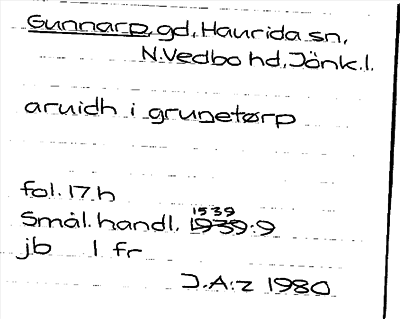 Gunnarp, gd, Haurida sn,
N.Vedbo hd, Jönk.l.
aruidh i grunetørp
fol. 17.h
1539
Smål. handl. 1939:9
jb 1 fr
J.A:z 1980